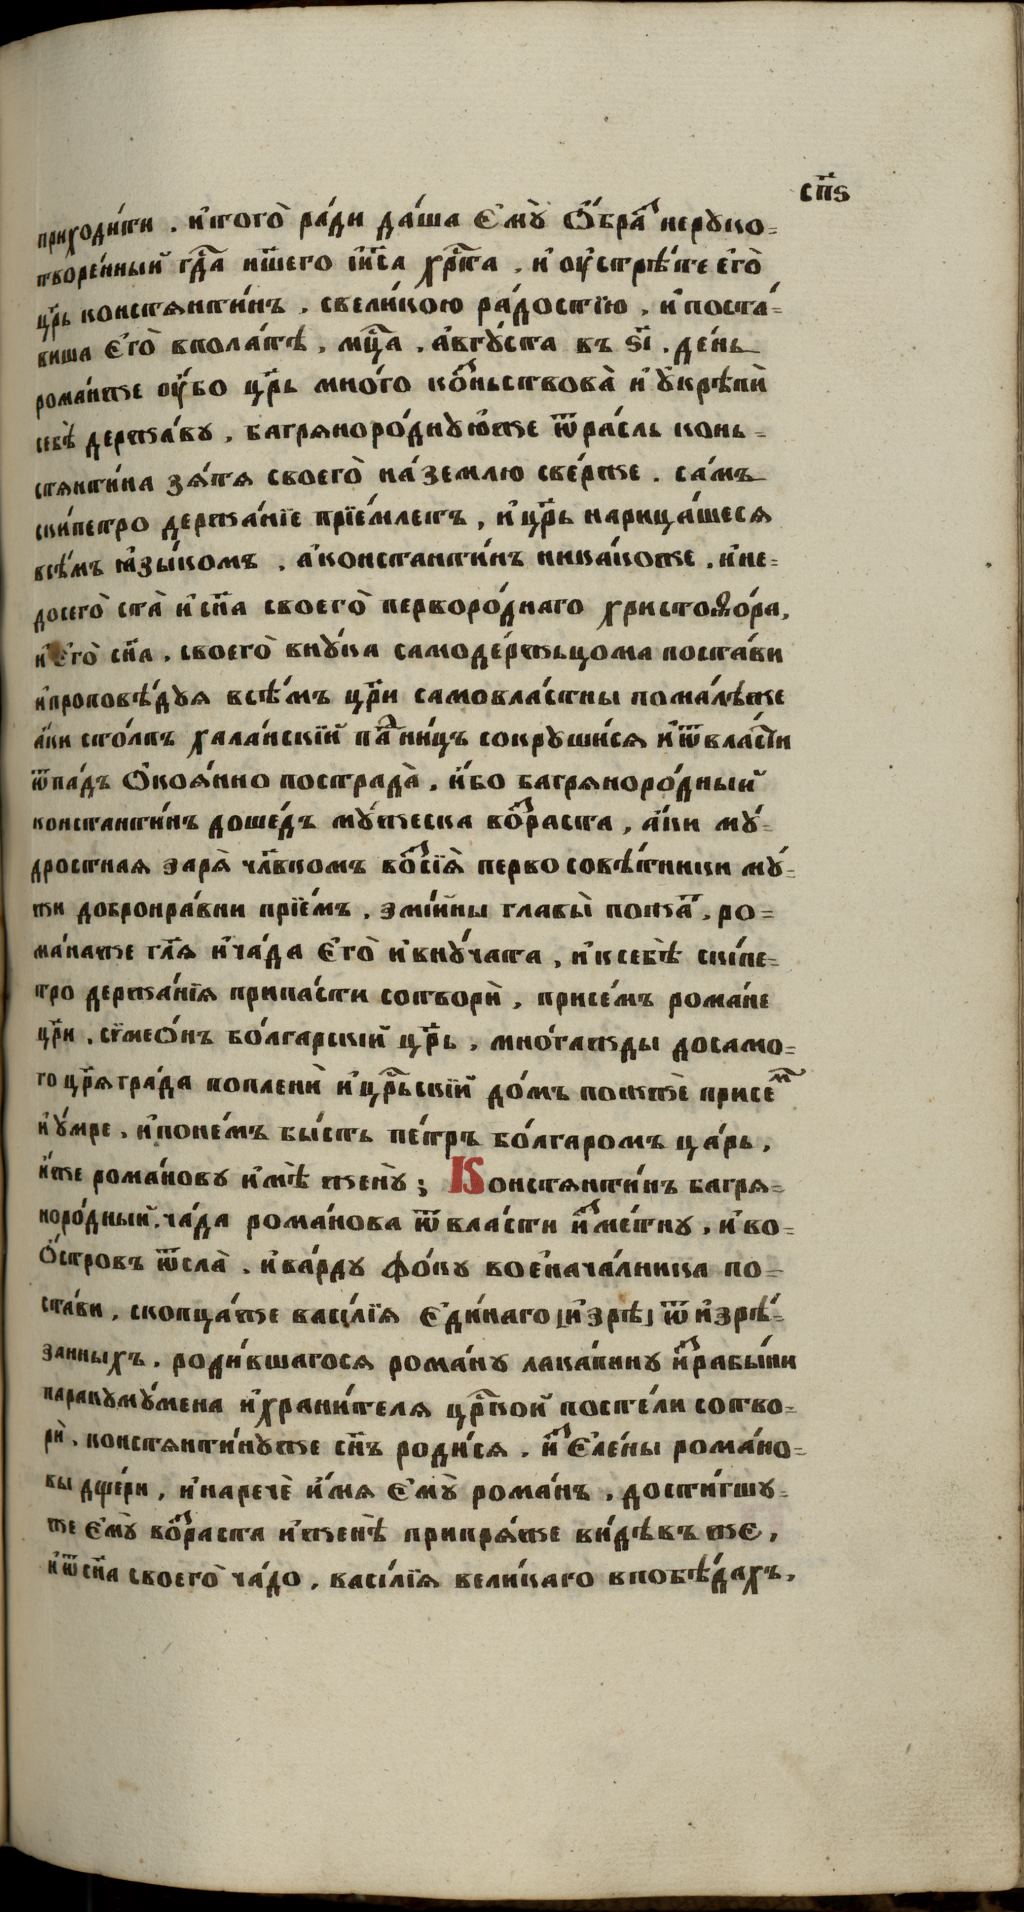 сп҃ѕ
приходи́ти . и҆ того̀ ра́ди да́ша є҆мꙋ̀ ѻ҆́браⷥ неруко=
творе́нный гдⷭ҇а нш҃его і҆и҃са хрⷭ҇та . и҆ оу҆стрѣ́те его̀
цр҃ь констѧнти́нъ . свели́кою ра́достїю . и҆ поста́=
виша є҆го̀ вполатѣ . мцⷭ҇а . а҆́вгꙋста въ ѕ҃і . де́нь
рома́нже оу҆́бо цр҃ь мно́го ко́ⷥньствова̀ и҆ оу҆крѣпѝ
себѣ держа́ву . багрѧноро́дную҆же ѿра́сль конь=
стѧнти́на зѧ́тѧ своего̀ на́ землю све́рже . са́мъ
ски́петро держа́нїе прїе́млетъ , и҆ цр҃ь нарица́шесѧ
всѣ́мъ ꙗ҆зы́комъ . а҆ константи́нъ ника́коже . и҆ не=
досего̀ ста̀ и҆ сн҃а своего̀ перворо́днаго христоѳо́ра,
и҆ є҆го̀ сн҃а . своего̀ вну́ка самоде́ржьцома поста́ви
и҆проповѣ́дуѧ всѣ́мъ цр҃и самовла́стны помалѣ́же
а҆́ки сто́лпъ хала́нскїй паⷣни́цъ сокруши́сѧ и҆ ѿвла́сти
ѿпа́дъ ѻ҆коѧ́нно пострада̀ . и҆́бо багрѧноро́дный
константи́нъ доше́дъ му́жеска воⷥ́раста , а҆́ки му́=
дростнаѧ зарѧ̀ чл҃вкомъ воⷥсїѧ̀ перво совѣ́тники му́=
жи добронра́вни прїе́мъ . змі́йны главы̀ пожаⷮ . ро=
ма́наже гл҃ѧ и҆ ча́да є҆го̀ и҆ вну́чата , и҆ к себѣ̀ ски́пе=
тро держа́нїѧ припа́сти сотворѝ , присе́мъ рома́не
цр҃и . сѷмеѻ́нъ бо́лгарскїй цр҃ь , мно́гажды досамо=
го цр҃ѧгра́да поплени́ и҆ цр҃ьскїй до́мъ пожжѐ присеⷨ
и҆ у҆́мре . и҆ поне́мъ бы́сть пе́тръ бо́лгаромъ ца́рь ,
и҆́же рома́нову и҆мѣ̀ жену̀ ; Констѧнти́нъ багрѧ=
норо́дный . ча́да рома́нова ѿвла́сти и҆ⷥме́тну , и҆ во=
ѻ҆́стровъ ѿсла̀ . и҆ ва́рду фо́ку воє҆нача́лника по=
ста́ви , скопца́же васи́лїѧ є҆ди́наго [и҆зрѣ] ѿ и҆зрѣ́=
занныхъ . роди́вшагосѧ рома́ну лакапину и҆ⷥрабы́ни
паракуму́мена и҆ храни́телѧ црⷭ҇кой посте́ли сотво=
рѝ . констѧнти́нуже сн҃ъ роди́сѧ . и҆ⷥ є҆ле́ны рома́но=
вы дще́ри , и҆ наречѐ и҆́мѧ є҆мꙋ̀ рома́нъ . дости́гшу=
же є҆мꙋ̀ воⷥ́раста и҆ женѣ̀ припрѧ́же ви́дѣвъ же ,
и҆ ѿ сн҃а своего̀ ча́до , васи́лїѧ вели́каго впобѣ́дахъ .